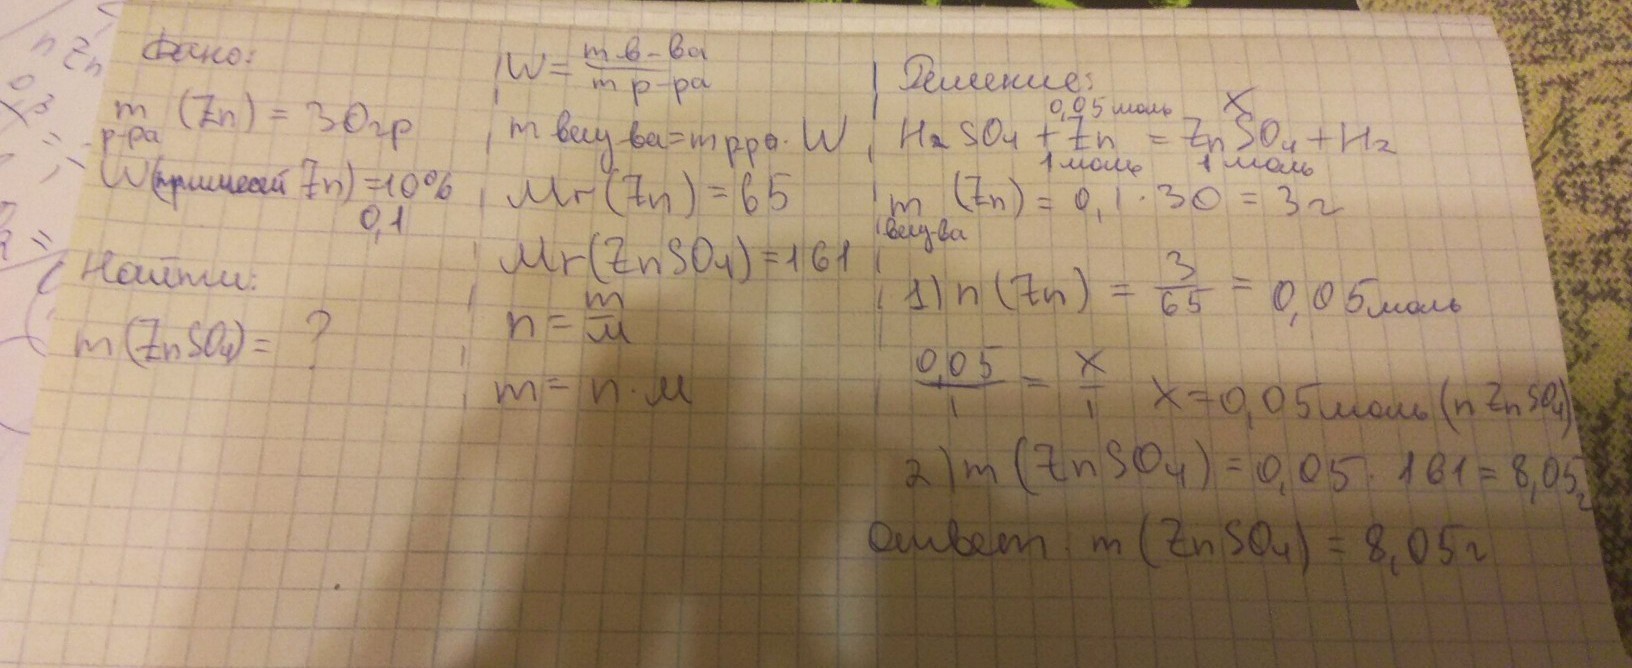 Дано:
m р-ра (Zn) = 30гр
W(примесей Zn) = 10%
0,1
Найти:
m(ZnSO4) = ?
W = m в-ва / m р-ра
m вещ-ва = m р-ра · W
Mr(Zn) = 65
Mr(ZnSO4) = 161
n = m/M
m = n · M
Решение:
0,05 моль X
H2SO4 + Zn = ZnSO4 + H2
1 моль 1 моль
m вещ-ва (Zn) = 0,1 · 30 = 3г
1) n(Zn) = 3/65 = 0,05 моль
0,05/1 = X/1 X = 0,05 моль (n ZnSO4)
2) m(ZnSO4) = 0,05 · 161 = 8,05г
Ответ. m(ZnSO4) = 8,05г
n Zn